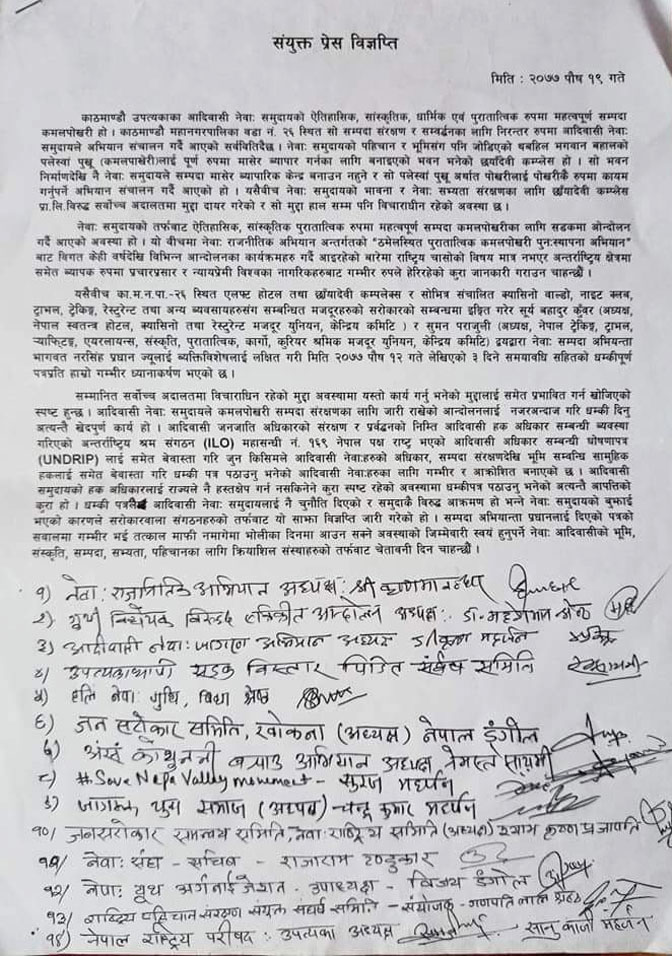 संयुक्त प्रेस विज्ञप्ति
मिति : २०७७ पौष १९ गते
काठमाण्डौ उपत्यकाका आदिवासी नेवाः समुदायको ऐतिहासिक, सांस्कृतिक, धार्मिक एवं पुरातात्विक रुपमा महत्वपूर्ण सम्पदा
कमलपोखरी हो । काठमाण्डौ महानगरपालिका वडा नं. २६ स्थित सो सम्पदा संरक्षण र सम्वर्द्धनका लागि निरन्तर रुपमा आदिवासी नेवाः
समुदायले अभियान संचालन गर्दै आएको सर्वविदितैछ । नेवाः समुदायको पहिचान र भूमिसंग पनि जोडिएको थबहिल भगवान बहालको
पलेस्वां पुखू (कमलपोखरी)लाई पूर्ण रुपमा मासेर ब्यापार गर्नका लागि बनाइएको भवन भनेको छायाँदेवी कम्पलेस हो । सो भवन
निर्माणदेखि नै नेवाः समुदायले सम्पदा मासेर ब्यापारिक केन्द्र बनाउन नहुने र सो पलेस्वां पुखू अर्थात पोखरीलाई पोखरीकै रुपमा कायम
गर्नुपर्ने अभियान संचालन गर्दै आएको हो । यसैबीच नेवाः समुदायको भावना र नेवाः सभ्यता संरक्षणका लागि छाँयादेवी कम्प्लेक्स
प्रा.लि.विरुद्ध सर्वोच्च अदालतमा मुद्दा दायर गरेको र सो मुद्दा हाल सम्म पनि विचाराधीन रहेको अवस्था छ ।
नेवाः समुदायको तर्फबाट ऐतिहासिक, सांस्कृतिक पुरातात्विक रुपमा महत्वपूर्ण सम्पदा कमलपोखरीका लागि सडकमा ओन्दोलन
गर्दै आएको अवस्था हो । यो बीचमा नेवाः राजनीतिक अभियान अन्तर्गतको "ठमेलस्थित पुरातात्विक कमलपोखरी पुनःस्थापना अभियान"
बाट विगत केही वर्षदेखि विभिन्न आन्दोलनका कार्यक्रमहरु गर्दै आइरहेको बारेमा राष्ट्रिय चासोको विषय मात्र नभएर अन्तर्राष्ट्रिय क्षेत्रमा
समेत ब्यापक रुपमा प्रचारप्रसार र न्यायप्रेमी विश्वका नागरिकहरुबाट गम्भीर रुपले हेरिरहेको कुरा जानकारी गराउन चाहन्छौं ।
यसैबीच का.म.न.पा.-२६ स्थित एलफ्ट होटल तथा छाँयादेवी कम्पलेक्स र सोभित्र संचालित क्यासिनो वाल्डो, नाइट क्लब,
ट्राभल, ट्रेकिङ्ग, रेस्टुरेन्ट तथा अन्य ब्यवसायहरुसंग सम्बन्धित मजदुरहरुको सरोकारको सम्बन्धमा इङ्गित गरेर सूर्य बहादुर कुँवर (अध्यक्ष,
नेपाल स्वतन्त्र होटल, क्यासिनो तथा रेस्टुरेन्ट मजदुर युनियन, केन्द्रिय कमिटि ) र सुमन पराजुली (अध्यक्ष, नेपाल ट्रेकिङ्ग, ट्राभल,
र्‍याफ्टिङ्ग, एयरलायन्स, संस्कृति, पुरातात्विक, कार्गो, कुरियर श्रमिक मजदुर युनियन, केन्द्रिय कमिटि) द्वयद्वारा नेवाः सम्पदा अभियन्ता
भागवत नरसिंह प्रधान ज्यूलाई ब्यक्तिविशेषलाई लक्षित गरी मिति २०७७ पौष १२ गते लेखिएको ३ दिने समयावधि सहितको धम्कीपूर्ण
पत्रप्रति हाम्रो गम्भीर ध्यानाकर्षण भएको छ ।
सम्मानित सर्वोच्च अदालतमा विचाराधिन रहेको मुद्दा अवस्थामा यस्तो कार्य गर्नु भनेको मुद्दालाई समेत प्रभावित गर्न खोजिएको
स्पष्ट हुन्छ । आदिवासी नेवाः समुदायले कमलपोखरी सम्पदा संरक्षणका लागि जारी राखेको आन्दोलनलाई नजरअन्दाज गरि धम्की दिनु
अत्यन्तै खेदपूर्ण कार्य हो । आदिवासी जनजाति अधिकारको संरक्षण र प्रर्वद्धनको निम्ति आदिवासी हक अधिकार सम्बन्धी ब्यवस्था
गरिएको अन्तर्राष्ट्रिय श्रम संगठन (ILO) महासन्धी नं. १६९ नेपाल पक्ष राष्ट्र भएको आदिवासी अधिकार सम्बन्धी घोषणापत्र
(UNDRIP) लाई समेत बेवास्ता गरि जुन किसिमले आदिवासी नेवाःहरुको अधिकार, सम्पदा संरक्षणदेखि भूमि सम्वन्धि सामुहिक
हकलाई समेत बेवास्ता गरि धम्की पत्र पठाउनु भनेको आदिवासी नेवाःहरुका लागि गम्भीर र आक्रोशित बनाएको छ । आदिवासी
समुदायको हक अधिकारलाई राज्यले नै हस्तक्षेप गर्न नसकिनेने कुरा स्पष्ट रहेको अवस्थामा धम्कीपत्र पठाउनु भनेको अत्यन्तै आपतिको
कुरा हो । धम्की पत्रले आदिवासी नेवाः समुदायलाई नै चुनौति दिएको र समुदाकै विरुद्ध आक्रमण हो भन्ने नेवाः समुदायको बुझाई
भएको कारणले सरोकारवाला संगठनहरुको तर्फवाट यो साझा विज्ञप्ति जारी गरेको हो । सम्पदा अभियान्ता प्रधानलाई दिएको पत्रको
सवालमा गम्भीर भई तत्काल माफी नमागेमा भोलीका दिनमा आउन सक्ने अवस्थाको जिम्मेवारी स्वयं हुनुपर्ने नेवाः आदिवासीको भूमि,
संस्कृति, सम्पदा, सभ्यता, पहिचानका लागि क्रियाशिल संस्थाहरुको तर्फवाट चेतावनी दिन चाहन्छौं ।
१) नेवाः राजनितिक अभियान अध्यक्ष : श्री कृष्णमान
२) गुथी विधेयक विरुद्ध आन्दोलन अध्यक्ष : डा. महेशमान
३) आदीवासी नेवाः जागरण अभियान अध्यक्ष महर्जन
४) उपत्यकाब्यापी सडक विस्तार पिडित संघर्ष समिति
५) नेवाः गुथि, विद्या श्रेष्ठ
६) जन सरोकार समिति, खोकना (अध्यक्ष) नेपाल डंगोल
७) बचाउ अभियान अध्यक्ष सायमी
८) # Save Nepa Valley movement - सुरज महर्जन
९) समाज (अध्यक्ष) - चन्द्र कुमार महर्जन
१०/ जनसरोकार समन्वय समिति, नेवाः राष्ट्रिय समिति (अध्यक्ष) श्याम कृष्ण प्रजापति
११/ नेवाः संघ - सचिब - राजाराम तण्डुकार
१२/ नेपाः यूथ अर्गनाईजेशन - उपाध्यक्ष - विजय डंगोल
१३/ राष्ट्रिय पहिचान संरक्षण संयुक्त संघर्ष समिति - संयोजक - गणपति लाल श्रेष्ठ
१४) नेपाल राष्ट्रिय परिषद : उपत्यका अध्यक्ष - सानु काजी महर्जन